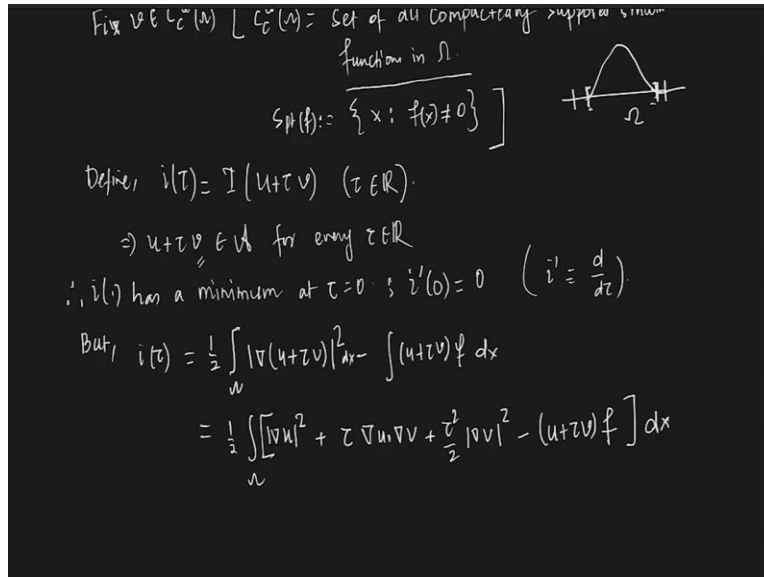 Fix v ∈ C_c^∞(Ω) [ C_c^∞(Ω) = Set of all compactly supported smooth
function in Ω.
Spt(f) := {x : f(x) ≠ 0} ]
Ω
Define, i(τ) = I(u+τv) (τ ∈ ℝ).
⇒ u+τv ∈ A for every τ ∈ ℝ
∴, i(·) has a minimum at τ=0 ; i'(0) = 0 ( i' = d/dτ ).
But, i(τ) = 1/2 ∫_Ω |∇(u+τv)|² dx - ∫(u+τv) f dx
= 1/2 ∫_Ω [|∇u|² + τ ∇u.∇v + τ²/2 |∇v|² - (u+τv) f ] dx